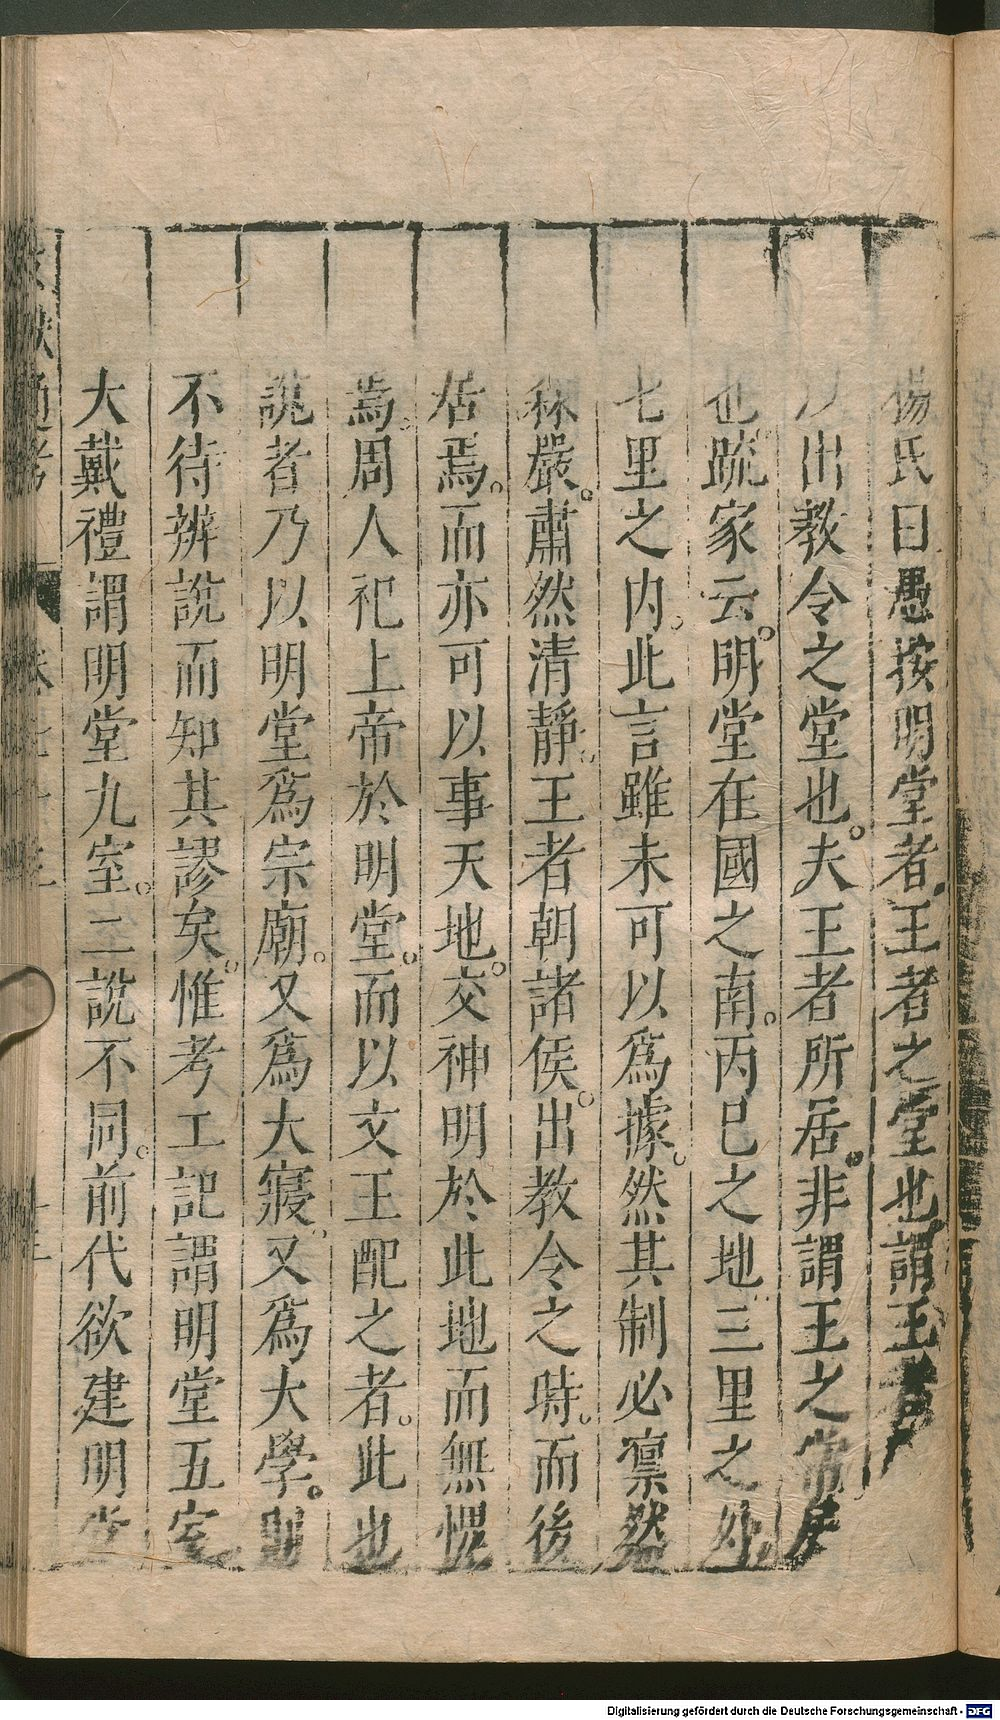 楊氏曰愚按明堂者王者之堂也謂王者
以出教令之堂也。夫王者所居。非謂王之常居
也。疏家云。明堂在國之南。丙巳之地三里之外
七里之内。此言雖未可以爲據。然其制必凛然
森嚴。肅然清靜。王者朝諸侯。出教令之時。而後
居焉。而亦可以事天地。交神明於此地而無愧
焉。周人祀上帝於明堂。而以文王配之者。此也
説者乃以明堂爲宗廟。又爲大寢。又爲大學。則
不待辨説而知其謬矣。惟考工記謂明堂五室
大戴禮謂明堂九室。二説不同。前代欲建明堂
文獻通考 卷七十三
Digitalisierung gefördert durch die Deutsche Forschungsgemeinschaft - DFG